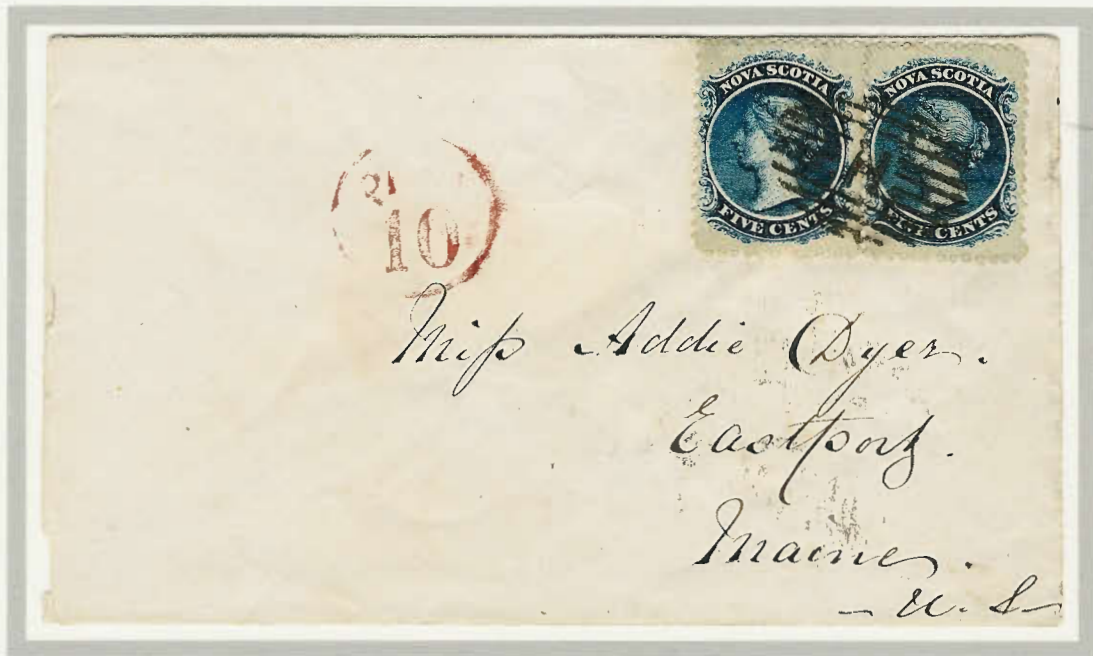 NOVA SCOTIA
FIVE CENTS
NOVA SCOTIA
CENTS
10
Miſs Addie Dyer.
Eastport.
Maine.
- U. S-